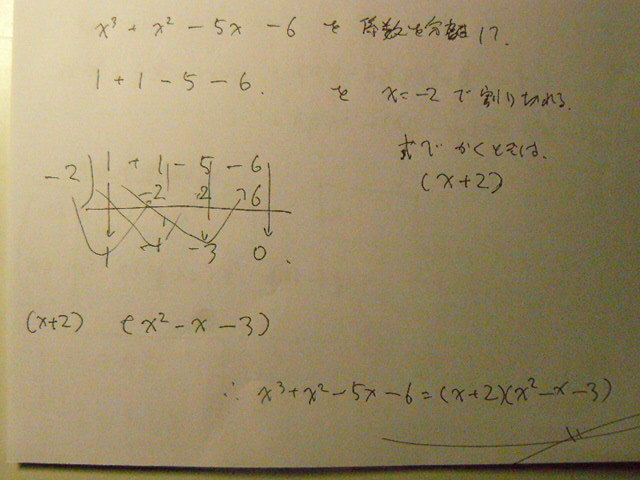 x³ + x² - 5x - 6 を 係数を分離して
1 + 1 - 5 - 6. を x = -2 で 割り切れる.
式で かくときは、
(x+2)
-2) 1 + 1 - 5 - 6
-2 2 6
1 -1 -3 0.
(x+2) (x² - x - 3)
∴ x³ + x² - 5x - 6 = (x+2)(x² - x - 3)